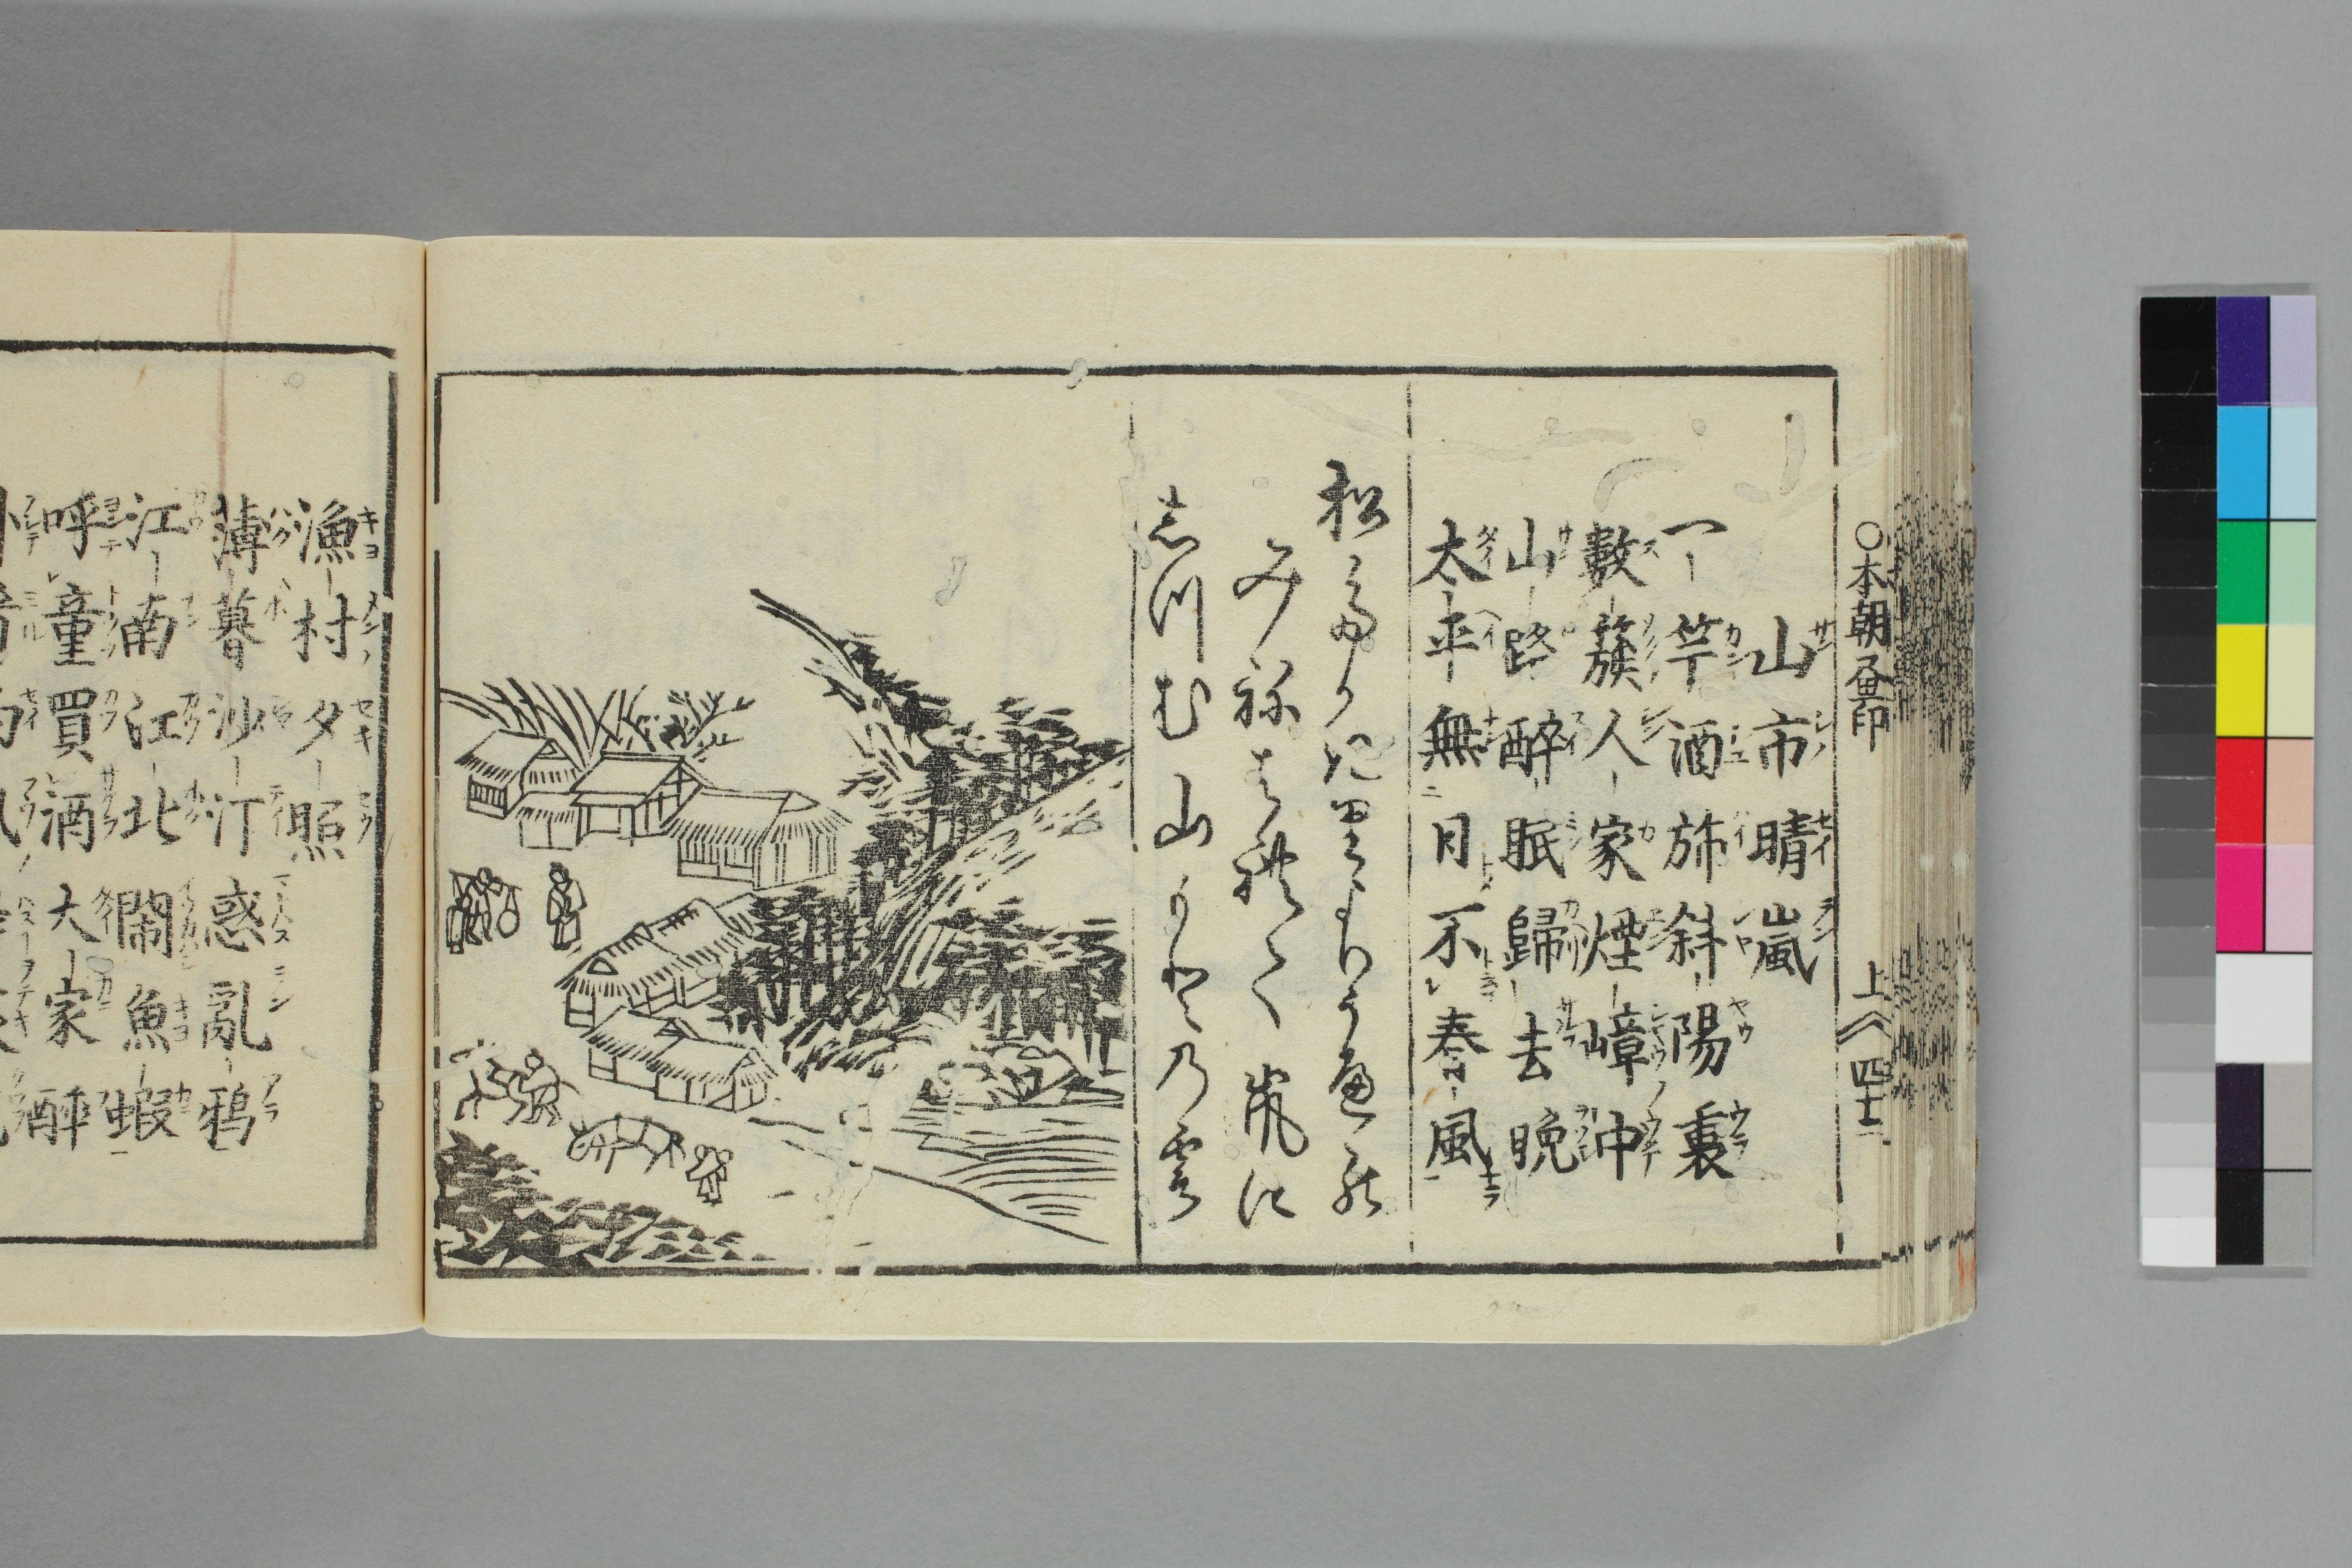 ○本朝画印 上 四十二
山市晴嵐
一竿酒旆斜陽裏
數簇人家煙嶂中
山路醉眠歸去晚
太平無日不春風
松たかき里よりうへの
みねはれて嵐に
しつむ山もとの雲
漁村夕照
薄暮沙汀惑亂鴉
江南江北鬧魚蝦
呼童買酒大家醉